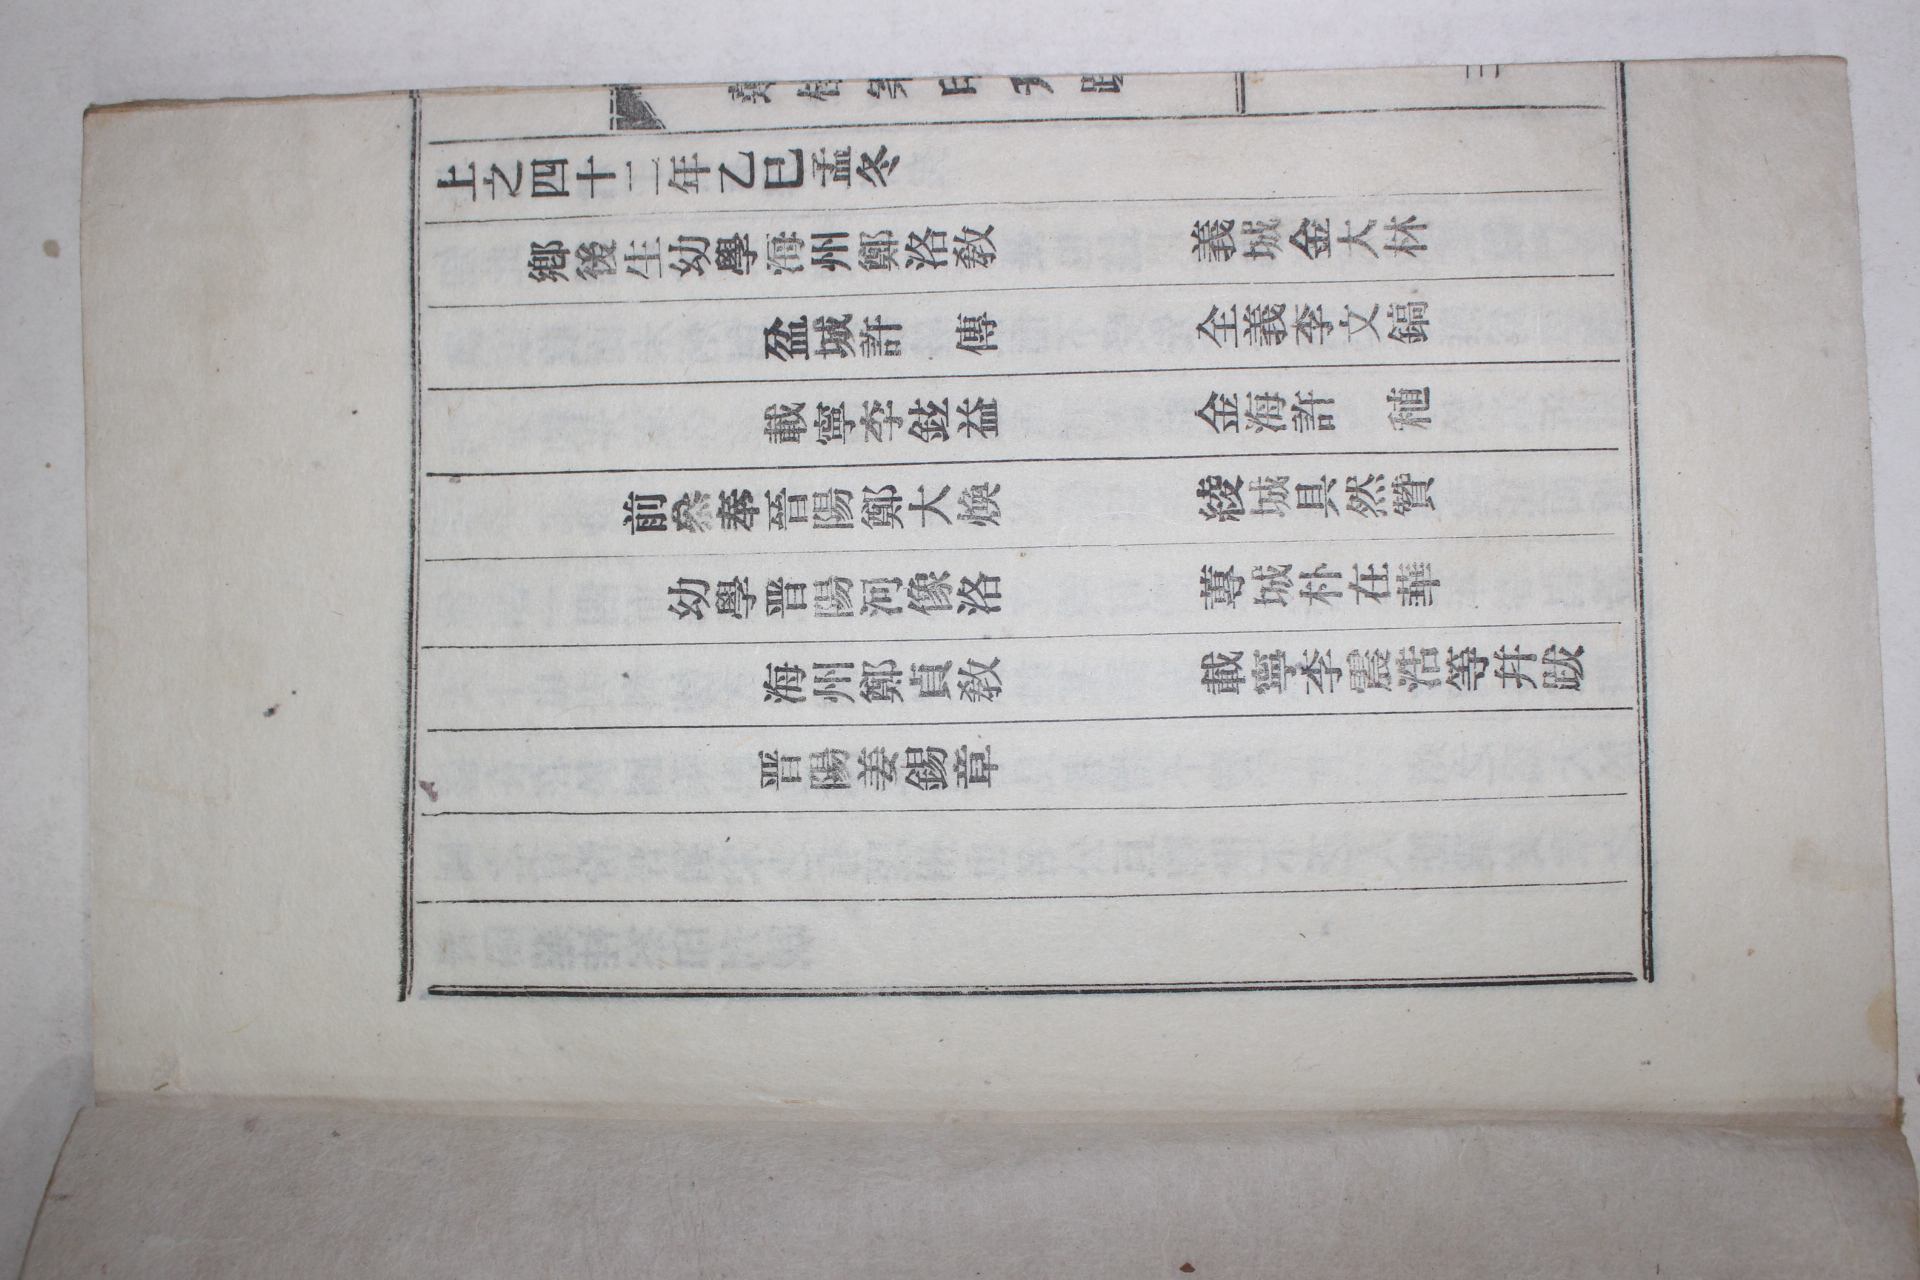 上之四十二年乙巳孟冬
鄕後生幼學海州鄭洛敎 義城金大林
盆城許 傳 全義李文鎬
載寧李鉉益 金海許 稙
前叅奉晉陽鄭大煥 綾城具然贊
幼學晋陽河像洛 蕙城朴在華
海州鄭貞敎 載寧李震浩等幷跋
晋陽姜錫章